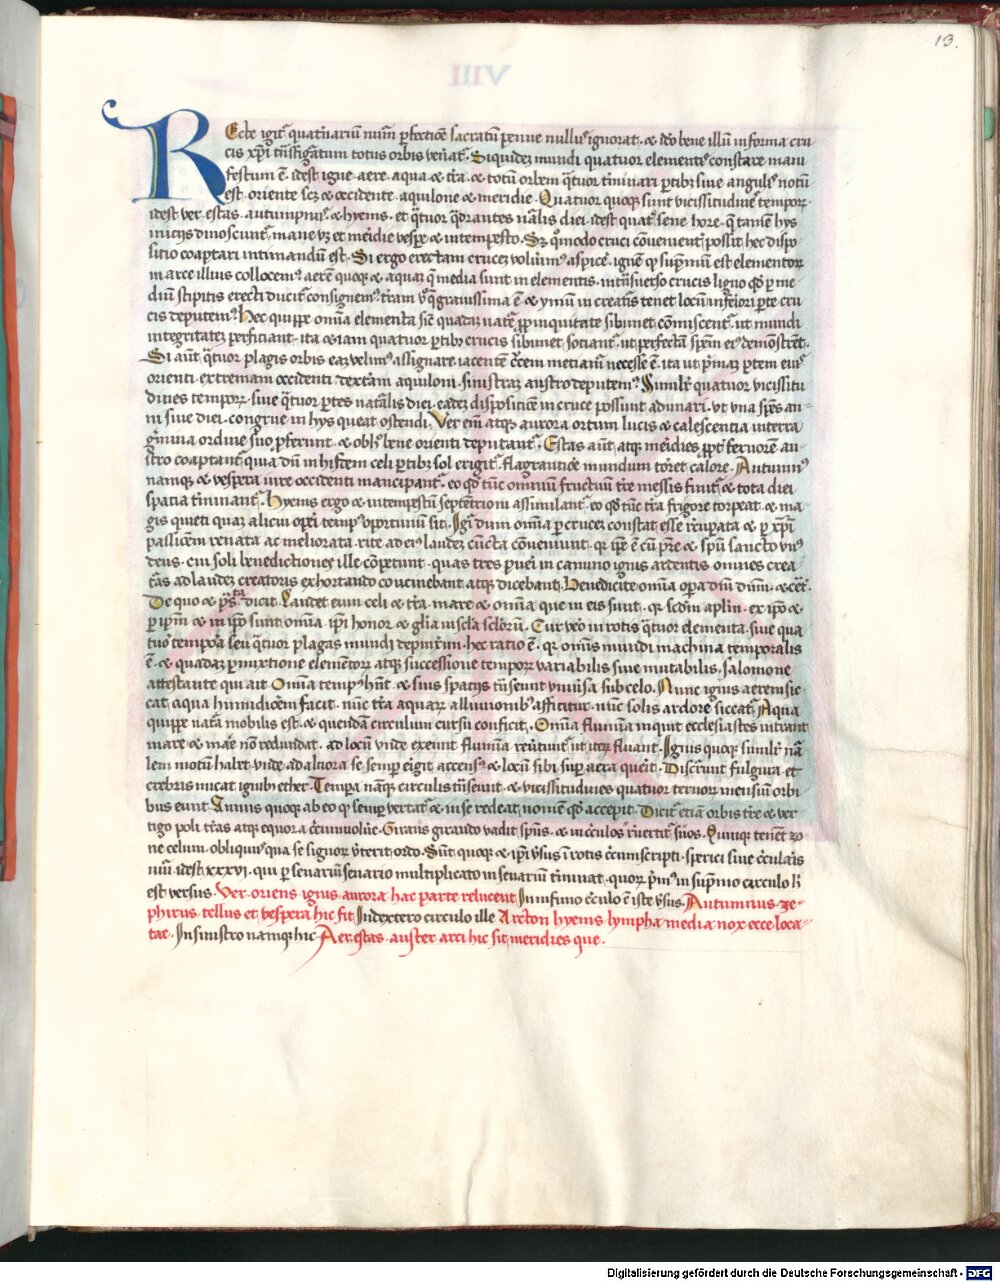 13.
VIII
Recte igit᷑ quat᷑nariū nūm ꝑfectiōe sacratū penne nullus ignorat. ⁊ iđo bene illū in forma cru
cis xp̄i tūs figātum totus orbis ven̄at᷑. Siquidē mundi quatuor elementis constare mani
festum ē. idest igne. aere. aqua ⁊ t᷑ra. ⁊ totū orbem q̄tuor t᷑minari ꝑtibꝫ siue angulis notū
est. oriente scꝫ ⁊ occidente. aquilone ⁊ meridie. Quatuor quoqꝫ sunt vicissitudine tempoꝝ
idest ver. estas. autumpnus. ⁊ hyems. et q̄tuor q̄drantes nālis diei. idest quat᷑ sene hore. q̄
iniciis dinoscunt᷑. mane vꝫ et meīdie vespe ⁊ intempesto. Sꝫ q̊modo cruci cōuenient᷑ possit hec dispo
sitio coaptari intimandū est. Si ergo erectam crucē volum᷒ aspicē. ignē qꝫ sup̄mū est elementoꝝ
in arce illius collocem᷒. aerē quoqꝫ ⁊ aquaꝫ q̄ media sunt in elementis. in tūsuerso crucis ligno qđ ꝑ me
diū stipitis erecti ducit᷑ consignem᷒. t᷑ram v̊ q̄ grauissima ē ⁊ ymū in creat᷑is tenet locū inferiori ꝑte cru
cis deputem᷒. Hec quippe om̄ia elementa sic̄ quadaꝫ nate ꝓpinquitate sibimet cōmiscent᷑. ut mundi
integritateꝫ perficiant. ita ⁊ iam quatuor ꝑtibꝫ crucis sibimet sotiant᷑. ut perfectā sp̄em ei᷒ demōstrēt.
Si aūt q̄tuor plagis orbis eaꝫ velim᷒ assignare. iacentē c᷑cem metiam᷑ necesse ē. ita ut p̄maꝫ ꝑtem eius
orienti. extremam occidenti. dextām aquiloni. sinistraꝫ austro deputem᷒. Similr̄ quatuor vicissitu
dines tempoꝝ. siue q̄tuor ꝑtes natalis diei. eadeꝫ dispositiōe in cruce possunt adunari. vt vna sp̄es an
ni siue diei. congrue in hys queat ostendi. Ver em̄ atqꝫ aurora ortum lucis ⁊ calescentia in terra
g̊minia ordine suo ꝓferunt. ⁊ ob h᷒ bene orienti deputant᷑. Estas aūt atqꝫ meīdies ꝓpt᷑ feruorē au
stro coaptant᷑ quia dū in hiis tem celi ꝑtibꝫ sol erigit᷑. flagranticē mundum torret calore. Autumn᷒
namqꝫ ⁊ vespera iure occidenti mancipant᷑. eo qđ tūc omnium fructuum t᷑re messis finit᷑ ⁊ tota diei
spatia t᷑minant᷑. Hyems ergo ⁊ intempestū septētrioni assimulant᷑. eo qđ tūc t᷑ra frigore torpeat ⁊ ma
gis quieti quaꝫ alicui oꝑi temp᷒ oportunū sit. Igit᷑ dum om̄ia ꝑ crucē constat esse recuꝑata ⁊ ꝑ xp̄i
passiōem renata ac meliorata. rite ad ei᷒ laudeꝫ cūcta cōueniunt. qꝛ ip̄e ē cū p̄re ⁊ sp̄u sancto vn᷒
deus. cui soli benedictiones ille cōpetunt. quas tres pueri in camino ignis ardentis omnes crea
t᷑as ad laudeꝫ creatoris exhortando concinebant atqꝫ dicebant. Benedicite om̄ia oꝑa dn̄i dn̄m. ⁊ cet̄.
De quo ⁊ p̄s̄ta dicit. Laudet eum celi ⁊ t᷑ra. mare ⁊ om̄ia que in eis sunt. qꝛ scdm apl̄m. ex ip̄o ⁊
ꝑ ip̄m ⁊ in ip̄o sunt om̄ia. ip̄i honor ⁊ glīa in scl̄a scl̄oꝝ. Cur vero in rotis q̄tuor elementa. siue qua
tuor tempora seu q̄tuor plagas mundi depinx᷑im. hec ratio ē. qꝛ om̄is mundi machina temporalis
ē. ⁊ quadaꝫ ꝑmixtione elemētoꝝ atqꝫ successione tempoꝝ variabilis siue mutabilis. salomone
attestante qui ait. Om̄ia temp᷒ hn̄t. ⁊ suis spatijs tn̄seunt vniūsa sub celo. Nunc ignis aerem sic
cat. aqua humidiōem facit. nūc t᷑ra aquaꝝ alluuionibꝫ afficitur. nūc solis ardore siccat᷑. Aqua
quippe nat᷑a mobilis est. ⁊ quendā circulum cursu conficit. Om̄ia flumīa inquit ecclesiastes intrant
mare ⁊ mare nō redundat. ad locū vnde exeunt flumīa reūtunt᷑ ut iteꝝ fluant. Ignis quoqꝫ similr̄ nā
lem motū habet. vnde ad altiora se semꝑ erigit accens᷒. ⁊ locū sibi suꝑ aera querit. Discr̄unt fulgura et
crebris micat ignibꝫ ether. Tempora nāqꝫ circulis tn̄seunt. ⁊ vicissitudines quatuor ternoꝝ mensium orbi
bus eunt. Annus quoqꝫ ab eo qꝫ semꝑ vertat᷑ ⁊ in se redeat. nomē qđ accepit. Dicit᷑ etiā orbis t᷑re ⁊ ver
tigo poli. t᷑ras atqꝫ equora c᷑cūuoluē. Girans girando vadit sp̄us. ⁊ in c᷑culos reuertit᷑ suos. Quinqꝫ tenēt zo
ne celum. obliquus qua se signoꝝ v̄terit ordo. Sūt quoqꝫ ⁊ ip̄i v̄sus ī rotis c᷑cūscripti. sperici siue c᷑culares
nūi. idest xxxvi. qui ꝑ senariū senario multiplicato in senariū t᷑minat. quoꝝ p̄m᷒ in sup̄mo circulo h̄
est versus. Ver. oriens ignis. aurora hac parte relucent. In infimo c᷑culo ē iste v̄sus. Autumnus ze-
phirus. tellus et vespera hic fit. In dextero circulo ille Arcton hyems lympha media nox ecce loca-
tac. In sinistro namqꝫ hic. Aer. estas. auster arci hic sit meridies que.
Digitalisierung gefördert durch die Deutsche Forschungsgemeinschaft - DFG